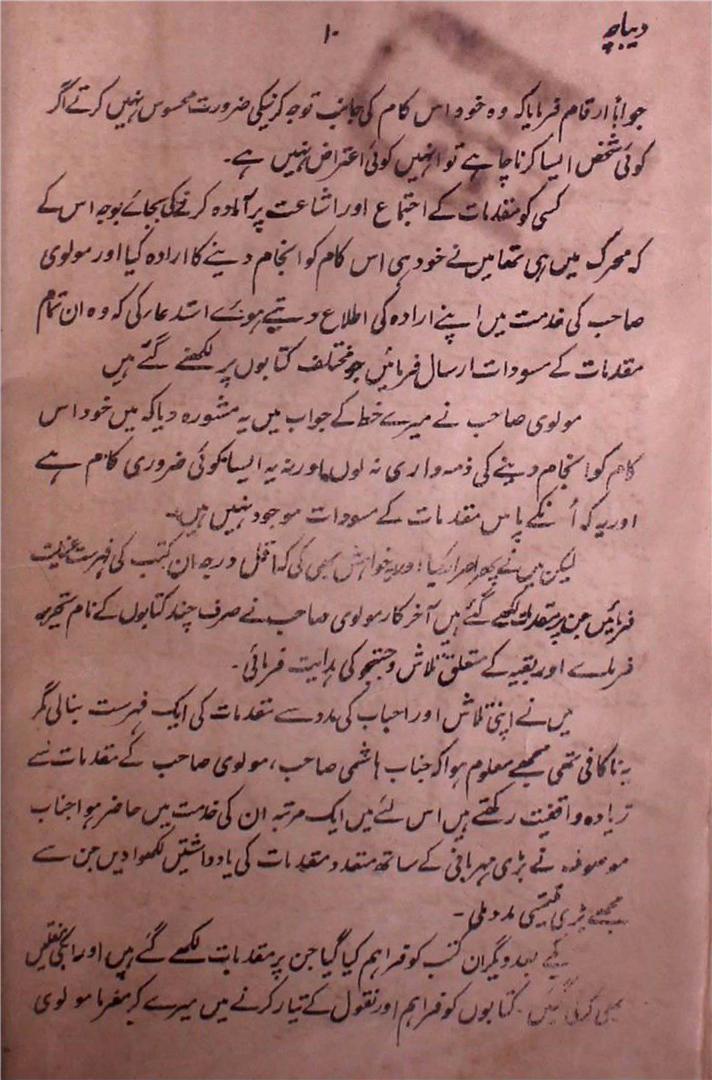 دیباچہ
۱۰
جواباً ارقام فرمایا کہ وہ خود اس کام کی جانب توجہ کرنیکی ضرورت محسوس نہیں کرتے اگر
کوئی شخص ایسا کرنا چاہے تو انہیں کوئی اعتراض نہیں ہے۔
کسی کو مقدمات کے اجتماع اور اشاعت پر آمادہ کرنے کی بجائے بوجہ اس کے
کہ محرک میں ہی تھا میں نے خود ہی اس کام کو انجام دینے کا ارادہ کیا اور مولوی
صاحب کی خدمت میں اپنے ارادہ کی اطلاع دیتے ہوئے استدعا کی کہ وہ ان تمام
مقدمات کے مسودات ارسال فرمائیں جو مختلف کتابوں پر لکھے گئے ہیں
مولوی صاحب نے میرے خط کے جواب میں یہ مشورہ دیا کہ میں خود اس
کام کو انجام دینے کی ذمہ داری نہ لوں اور نہ یہ ایسا کوئی ضروری کام ہے
اور یہ کہ اُنکے پاس مقدمات کے مسودات موجود نہیں ہیں۔
لیکن میں نے پھر اصرار کیا اور یہ خواہش بھی کی کہ اقل درجہ ان کتب کی فہرست عنایت
فرمائیں جن پر مقدمات لکھے گئے ہیں آخر کار مولوی صاحب نے صرف چند کتابوں کے نام تحریر
فرمائے اور بقیہ کے متعلق تلاش و جستجو کی ہدایت فرمائی۔
میں نے اپنی تلاش اور احباب کی مدد سے مقدمات کی ایک فہرست بنالی مگر
یہ ناکافی تھی مجھے معلوم ہوا کہ جناب ہاشمی صاحب، مولوی صاحب کے مقدمات سے
زیادہ واقفیت رکھتے ہیں اس لئے میں ایک مرتبہ ان کی خدمت میں حاضر ہوا جناب
موصوف نے بڑی مہربانی کے ساتھ متعدد مقدمات کی یادداشتیں لکھوا دیں جن سے
مجھے بڑی قیمتی مدد ملی۔
کے بعد دیگر ان کتب کو فراہم کیا گیا جن پر مقدمات لکھے گئے ہیں اور انکی نقلیں
بھی کرلی گئیں۔ کتابوں کو فراہم اور نقول کے تیار کرنے میں میرے کرمفرما مولوی